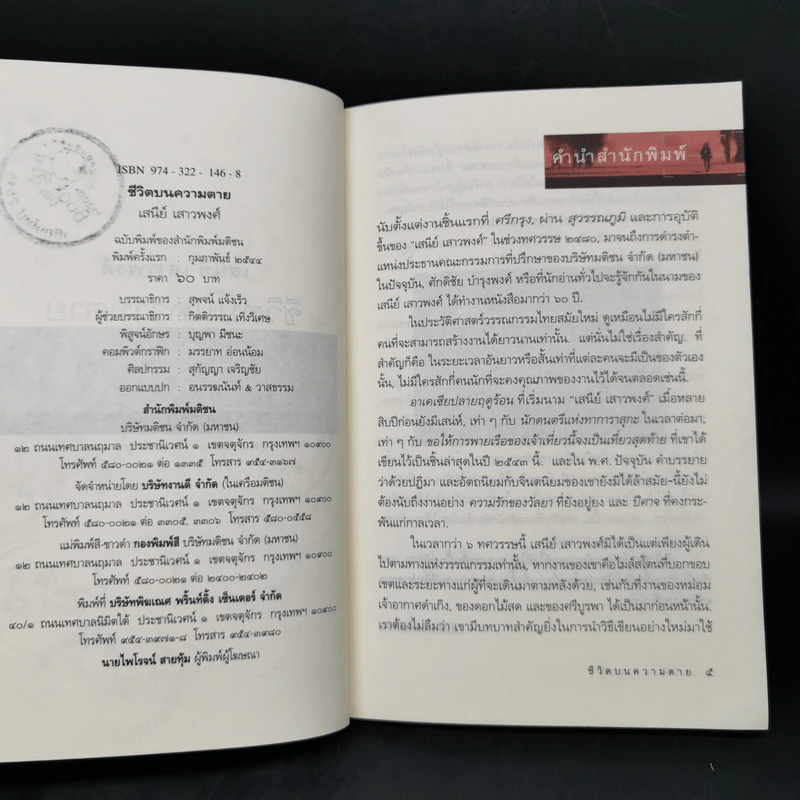 ISBN 974 - 322 - 146 - 8
ชีวิตบนความตาย
เสนีย์ เสาวพงศ์
ฉบับพิมพ์ของสำนักพิมพ์มติชน
พิมพ์ครั้งแรก : กุมภาพันธ์ ๒๕๔๔
ราคา ๖๐ บาท
บรรณาธิการ : สุพจน์ แจ้งเร็ว
ผู้ช่วยบรรณาธิการ : กิตติวรรณ เทิงวิเศษ
พิสูจน์อักษร : บุญพา มีชนะ
คอมพิวต์กราฟิก : มรรยาท อ่อนน้อม
ศิลปกรรม : สุกัญญา เจริญชัย
ออกแบบปก : อนรรฆนันท์ & วาสธรรม
สำนักพิมพ์มติชน
บริษัทมติชน จำกัด (มหาชน)
๑๒ ถนนเทศบาลนฤมาล ประชานิเวศน์ ๑ เขตจตุจักร กรุงเทพฯ ๑๐๙๐๐
โทรศัพท์ ๕๘๐-๐๐๒๑ ต่อ ๑๓๓๕ โทรสาร ๙๕๔-๓๑๖๗
จัดจำหน่ายโดย บริษัทงานดี จำกัด (ในเครือมติชน)
๑๒ ถนนเทศบาลนฤมาล ประชานิเวศน์ ๑ เขตจตุจักร กรุงเทพฯ ๑๐๙๐๐
โทรศัพท์ ๕๘๐-๐๐๒๑ ต่อ ๓๓๐๕, ๓๓๐๖ โทรสาร ๕๘๐-๐๕๕๘
แม่พิมพ์สี-ขาวดำ กองพิมพ์สี บริษัทมติชน จำกัด (มหาชน)
๑๒ ถนนเทศบาลนฤมาล ประชานิเวศน์ ๑ เขตจตุจักร กรุงเทพฯ ๑๐๙๐๐
โทรศัพท์ ๕๘๐-๐๐๒๑ ต่อ ๒๔๐๐-๒๔๐๒
พิมพ์ที่ บริษัทพิฆเณศ พริ้นท์ติ้ง เซ็นเตอร์ จำกัด
๔๐/๑ ถนนเทศบาลนิมิตใต้ ประชานิเวศน์ ๑ เขตจตุจักร กรุงเทพฯ ๑๐๙๐๐
โทรศัพท์ ๙๕๔-๓๙๗๑-๘ โทรสาร ๙๕๔-๓๙๘๐
นายไพโรจน์ สายทุ้ม ผู้พิมพ์ผู้โฆษณา
คำนำสำนักพิมพ์
นับตั้งแต่งานชิ้นแรกที่ ศรีกรุง, ผ่าน สุวรรณภูมิ และการอุบัติ
ขึ้นของ “เสนีย์ เสาวพงศ์” ในช่วงทศวรรษ ๒๔๘๐, มาจนถึงการดำรงตำ-
แหน่งประธานคณะกรรมการที่ปรึกษาของบริษัทมติชน จำกัด (มหาชน)
ในปัจจุบัน, ศักดิชัย บำรุงพงศ์ หรือที่นักอ่านทั่วไปจะรู้จักกันในนามของ
เสนีย์ เสาวพงศ์ ได้ทำงานหนังสือมากว่า ๖๐ ปี.
ในประวัติศาสตร์วรรณกรรมไทยสมัยใหม่ ดูเหมือนไม่มีใครสักกี่
คนที่จะสามารถสร้างงานได้ยาวนานเท่านั้น. แต่นั่นไม่ใช่เรื่องสำคัญ. ที่
สำคัญก็คือ ในระยะเวลาอันยาวหรือสั้นเท่าที่แต่ละคนจะมีเป็นของตัวเอง
นั้น, ไม่มีใครสักกี่คนนักที่จะคงคุณภาพของงานไว้ได้จนตลอดเช่นนี้.
อาเคเชียปลายฤดูร้อน ที่เริ่มนาม “เสนีย์ เสาวพงศ์” เมื่อหลาย
สิบปีก่อนยังมีเสน่ห์, เท่า ๆ กับ นักดนตรีแห่งทาการาสุกะ ในเวลาต่อมา,
เท่า ๆ กับ ขอให้การพายเรือของเจ้าเที่ยวนี้จงเป็นเที่ยวสุดท้าย ที่เขาได้
เขียนไว้เป็นชิ้นล่าสุดในปี ๒๕๔๓ นี้. และใน พ.ศ. ปัจจุบัน คำบรรยาย
ว่าด้วยปฏิมา และอัตถนิยมกับจินตนิยมของเขายังมิได้ล้าสมัย–นี้ยังไม่
ต้องนับถึงงานอย่าง ความรักของวัลยา ที่ยังอยู่ยง และ ปีศาจ ที่คงกระ-
พันแก่กาลเวลา.
ในเวลากว่า ๖ ทศวรรษนี้ เสนีย์ เสาวพงศ์มิได้เป็นแต่เพียงผู้เดิน
ไปตามทางแห่งวรรณกรรมเท่านั้น, หากงานของเขาคือไมล์สโตนที่บอกขอบ
เขตและระยะทางแก่ผู้ที่จะเดินมาตามหลังด้วย, เช่นกับที่งานของหม่อม
เจ้าอากาศดำเกิง, ของดอกไม้สด และของศรีบูรพา ได้เป็นมาก่อนหน้านั้น.
เราต้องไม่ลืมว่า เขามีบทบาทสำคัญยิ่งในการนำวิธีเขียนอย่างใหม่มาใช้
ชีวิตบนความตาย ๕